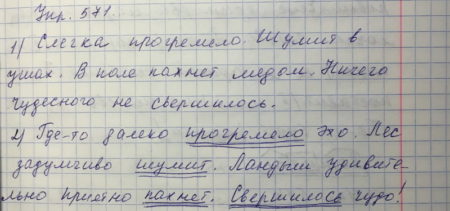 Упр. 571.
1) Слегка прогремело. Шумит в
ушах. В поле пахнет медом. Ничего
чудесного не свершилось.
2) Где-то далеко прогремело эхо. Лес
задумчиво шумит. Ландыш удивите-
льно приятно пахнет. Свершилось чудо!